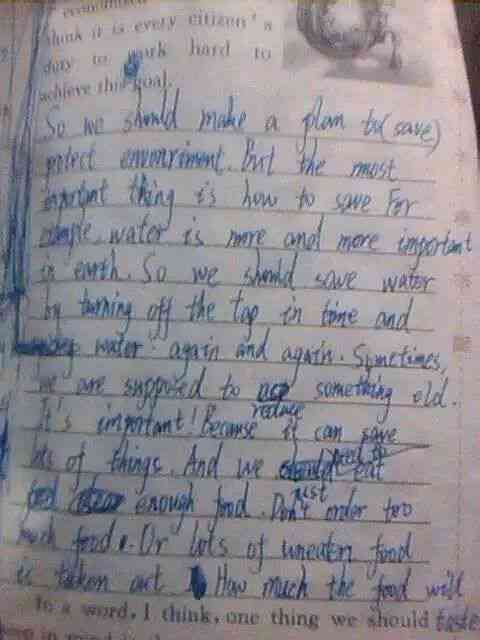 think it is every citizen's
duty to work hard to
achieve this goal.
So we should make a plan to (save)
potect environriment. But the most
important thing is how to save For
example, water is more and more important
in earth. So we should save water
by turning off the tap in time and
water again and again. Sometimes,
we are supposed to reduce something old.
It's important! Because it can save
lots of things. And we need to eat
just enough food. Don't order too
much food. Or lots of uneaten food
is taken out How much the food will
In a word, I think, one thing we should taste